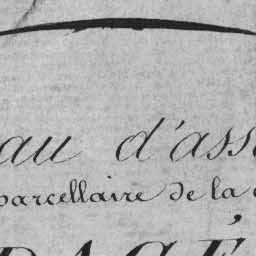 au d'ass
parcellaire de la